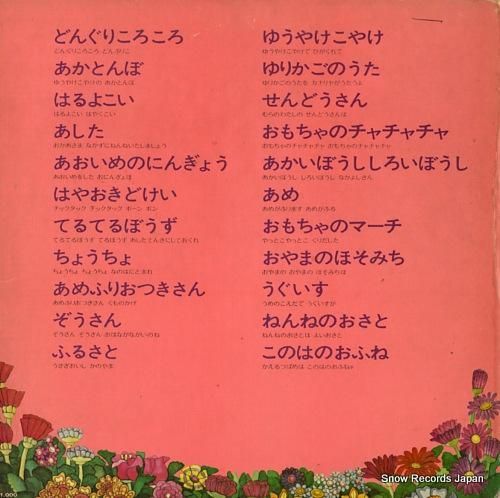 どんぐりころころ
どんぐりころころ どんぶりこ
あかとんぼ
ゆうやけこやけの あかとんぼ
はるよこい
はるよこい はやくこい
あした
おかあさま なかずにねんねいたしましょう
あおいめのにんぎょう
あおいめをした おにんぎょは
はやおきどけい
チックタック チックタック ボーン ボン
てるてるぼうず
てるてるぼうず てるぼうず あしたてんきにしておくれ
ちょうちょ
ちょうちょ ちょうちょ なのはにとまれ
あめふりおつきさん
あめふりおつきさん くものかげ
ぞうさん
ぞうさん ぞうさん おはながながいのね
ふるさと
うさぎおいし かのやま
ゆうやけこやけ
ゆうやけこやけで ひがくれて
ゆりかごのうた
ゆりかごのうたを カナリヤがうたうよ
せんどうさん
むらのわたしの せんどうさんは
おもちゃのチャチャチャ
おもちゃのチャチャチャ おもちゃのチャチャチャ
あかいぼうししろいぼうし
あかいぼうし しろいぼうし なかよしさん
あめ
あめがふります あめがふる
おもちゃのマーチ
やっとこやっとこ くりだした
おやまのほそみち
おやまの おやまの ほそみちは
うぐいす
うめのこえだで うぐいすが
ねんねのおさと
ねんねのおさとは よいおさと
このはのおふね
かえるつばめは このはのおふねね
1,000
Snow Records Japan